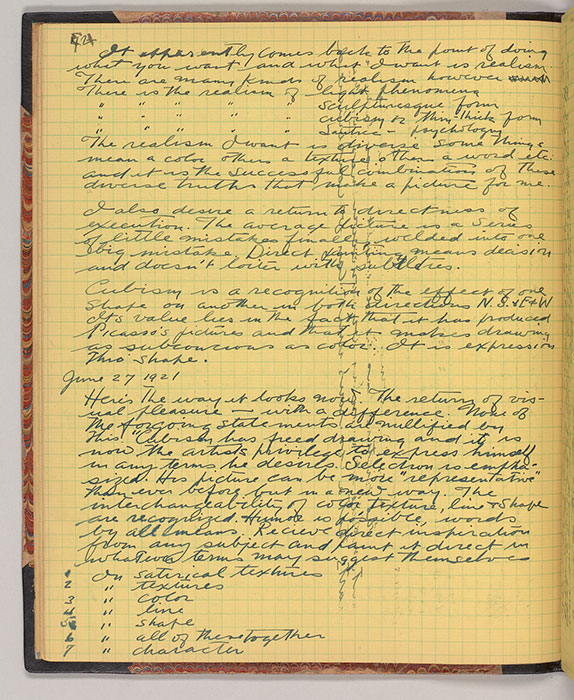 54
It apparently comes back to the point of doing
what you want and what I want is realism.
There are many kinds of realism however
There is the realism of light phenomena
" " " " " sculpturesque form
" " " " " cubism or thru-thick form
" " " " " Satiric - psychology
The realism I want is diverse some things
mean a color others a texture others a word etc.
and it is the successful combination of these
diverse truths that make a picture for me.
I also desire a return to directness of
execution. The average picture is a series
of little mistakes finally welded into one
big mistake. Direct painting means decision
and doesn't loiter with subtleties.
Cubism is a recognition of the effect of one
shape on another in both directions N.S. & E+W
Its value lies in the fact that it has produced
Picasso's pictures and that it makes drawing
as subconcious as color. It is expression
thro' shape.
June 27 1921
Heris the way it looks now. The return of vis-
ual pleasure — with a difference. None of
the forgoing statements are nullified by
this "Cubism has freed drawing and it is
now the artists privilege to express himself
in any terms he desires. Selection is empha-
sized. His picture can be more "representative"
than ever before but in a new way. The
interchangeability of color, texture, line & shape
are recognized. Humor is possible, words
by all means. Recieve direct inspiration
from any subject and paint it direct in
whatever terms may suggest themselves
1 In satirical textures
2 " textures
3 " color
4 " line
5 " shape
6 " all of these together
7 " character